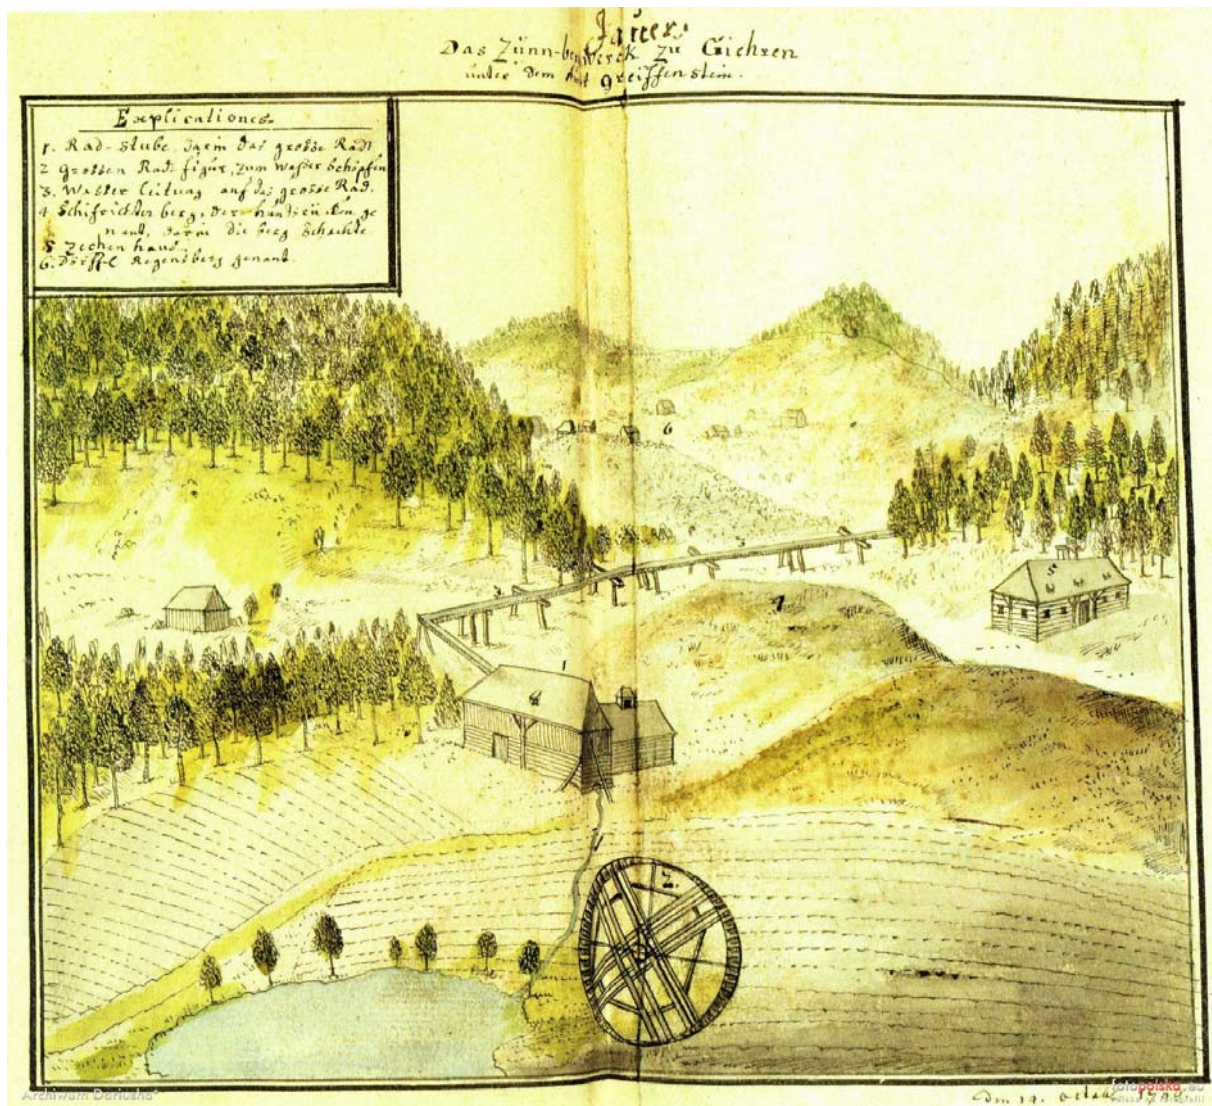 Jauer.
Das Zünn-bergwerck zu Giehren
unter dem Amt greiffenstein.
Explicationes
1. Rad-stube darin das grosse Radt
2 grossen Rad figur, zum wasser schöpfen
3. Wasser leitung auf das grosse Rad.
4 berg, der ge
nant, darin die berg schachte
5 zechen haus.
6. Dörffel Regensberg genant.
6
3
3
5
4
1
2.
Den 19. 
Archiwum Dariusha
fotopolska.eu